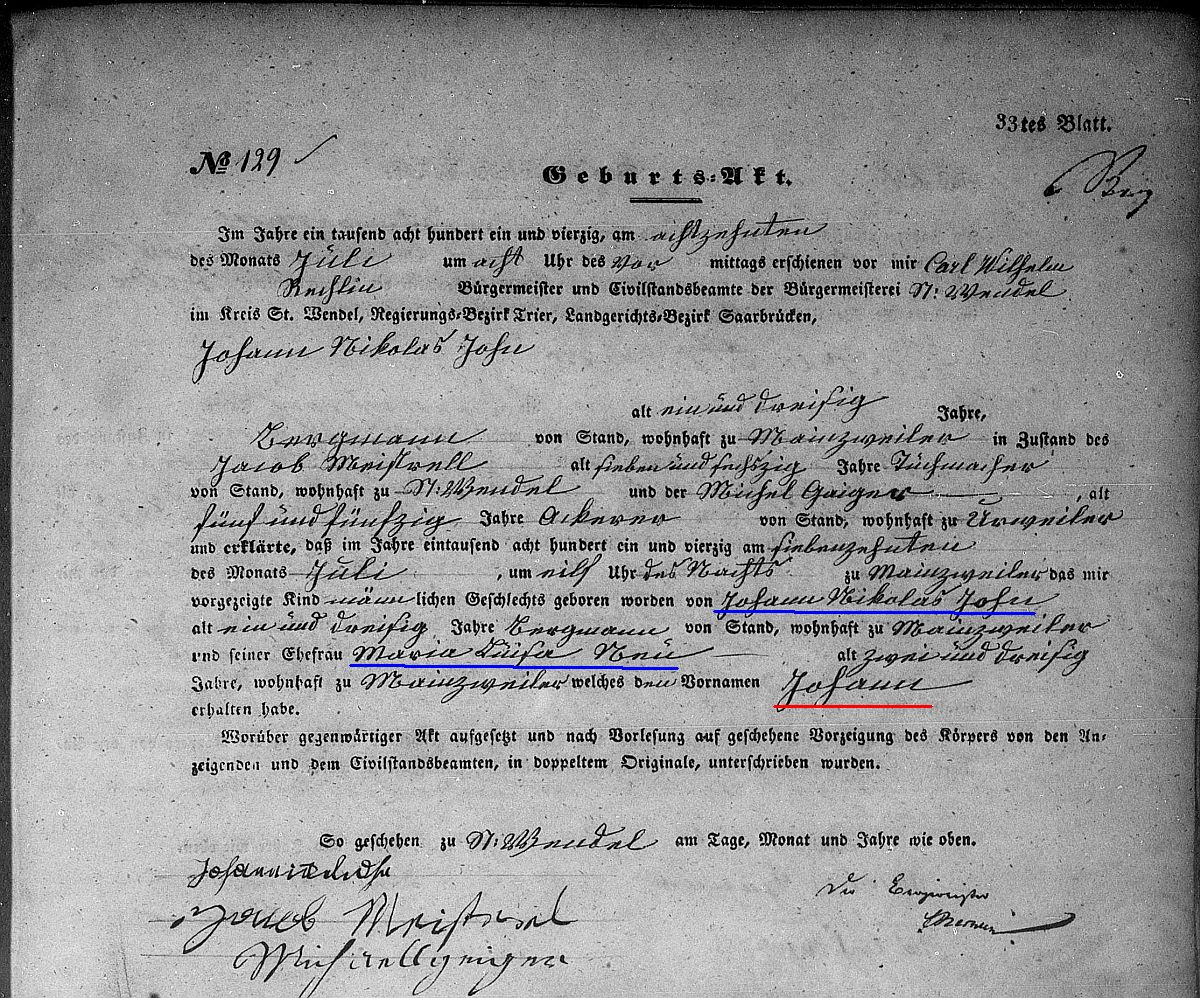 33tes Blatt.
№ 129
Geburts-Akt.
Im Jahre ein tausend acht hundert ein und vierzig, am achtzehnten
des Monats Juli um acht Uhr des Vor mittags erschienen vor mir Carl Wilhelm
Rechlin Bürgermeister und Civilstandsbeamte der Bürgermeisterei St: Wendel
im Kreis St. Wendel, Regierungs-Bezirk Trier, Landgerichts-Bezirk Saarbrücken,
Johann Nikolas John
alt ein und dreisig Jahre,
Bergmann von Stand, wohnhaft zu Mainzweiler in Zustand des
Jacob Meistrell alt sieben und sechszig Jahre Tuchmacher
von Stand, wohnhaft zu St: Wendel und der Michel Gaiger , alt
fünf und fünfzig Jahre Ackerer von Stand, wohnhaft zu Urweiler
und erklärte, daß im Jahre eintausend acht hundert ein und vierzig am siebenzehnten
des Monats Juli , um eilf Uhr des Nachts zu Mainzweiler das mir
vorgezeigte Kind männ lichen Geschlechts geboren worden von Johann Nikolas John
alt ein und dreisig Jahre Bergmann von Stand, wohnhaft zu Mainzweiler
und seiner Ehefrau Maria Luisa Neu alt zwei und dreisig
Jahre, wohnhaft zu Mainzweiler welches den Vornamen Johann
erhalten habe.
Worüber gegenwärtiger Akt aufgesetzt und nach Vorlesung auf geschehene Vorzeigung des Körpers von den An-
zeigenden und dem Civilstandsbeamten, in doppeltem Originale, unterschrieben wurden.
So geschehen zu St: Wendel am Tage, Monat und Jahre wie oben.
Der Bürgermeister
Jacob Meistrel
Michell geiger